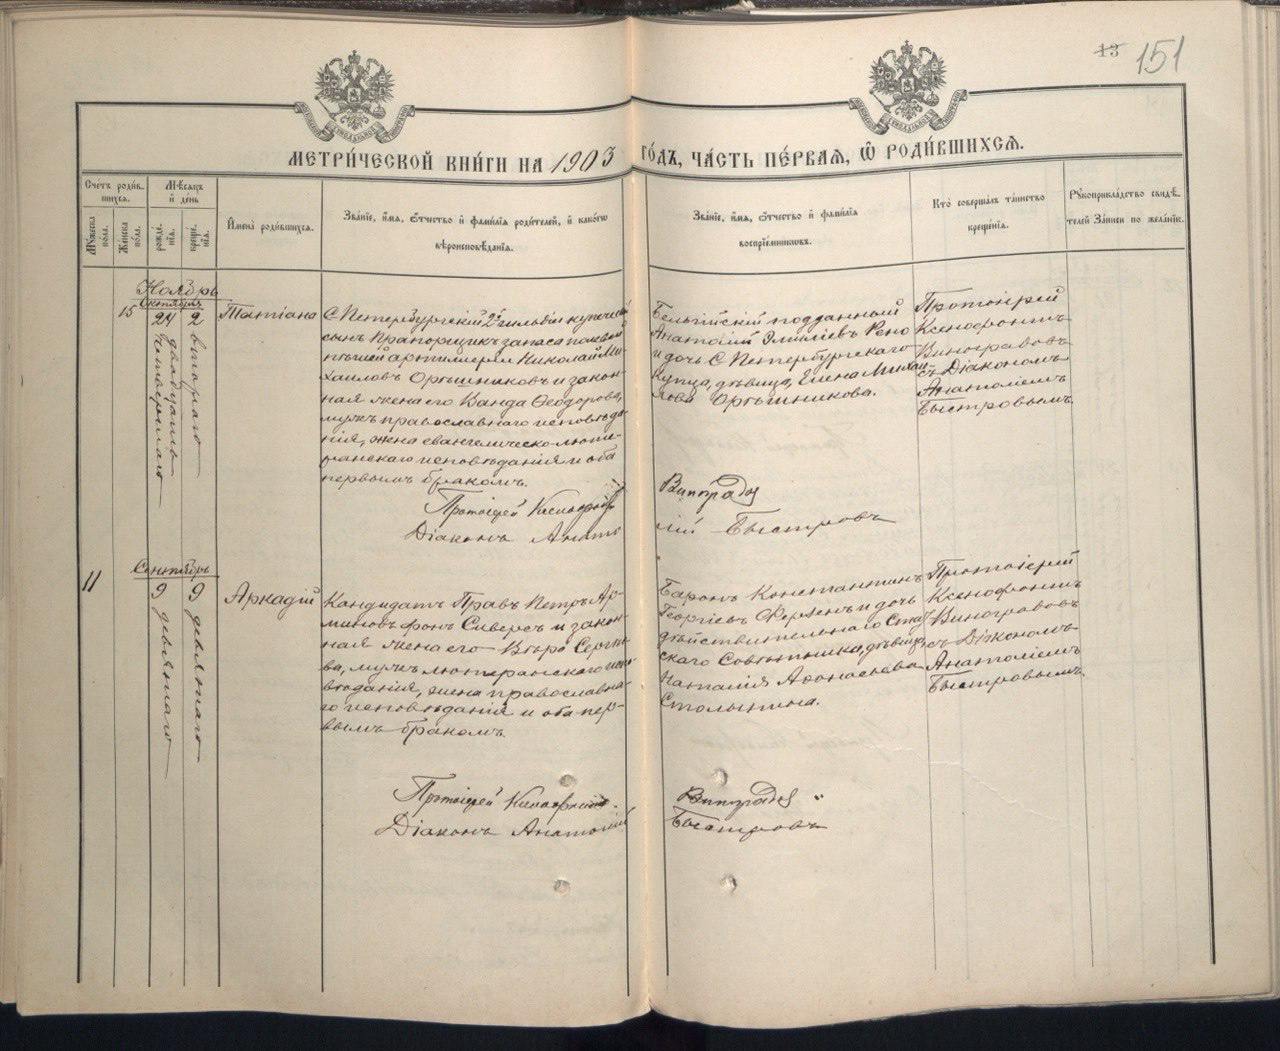 13 151
МЕТРИ́ЧЕСКОЙ КНИ́ГИ НА 1903 ГО́ДЪ, ЧА́СТЬ ПЕ́РВАЯ, Ѡ РОДИ́ВШИХСЯ.
Сче́тъ роди́в-
шихся.
Му́жеска
по́ла.
Же́нска
по́ла.
Мѣ́сяцъ
и҆ де́нь
рожде́-
нїѧ.
креще́-
нїѧ.
И҆мена̀ роди́вшихся.
Зва́нїе, и҆́мя, ѻ҆́тчество и҆ фами́лїя роди́телей, и҆ како́гѡ
вѣроисповѣ́данїѧ.
Зва́нїе, и҆́мя, ѻ҆́тчество и҆ фами́лїя
воспрїе́мниковъ.
Кто̀ соверша́лъ та́инство
креще́нїѧ.
Рꙋкоприкла́дство свидѣ́-
телей за́писи по жела́нїю.
Ноябрь
Октября
15
24 двадцать четвертаго
2 втораго
Татіана
С Петербургскій 2й гильдіи купеческій
сынъ Прапорщикъ запаса полевой
пѣшей артиллеріи Николай Ми-
хаиловъ Оргышниковъ и закон-
ная жена его Ванда Ѳеодорова,
мужъ православнаго исповѣда-
нія, жена евангелическо-люте-
ранскаго исповѣданія и оба
первымъ бракомъ.
Бельгійскій подданный
Анатолій Эмиліевъ Рено
и дочь С Петербургскаго
Купца, дѣвица, Елена Михаи-
лова Оргышникова.
Протоіерей
Ксенофонтъ
Виноградовъ
съ Діакономъ
Анатоліемъ
Быстровымъ.
Протоіерей Ксенофонтъ Виноградов
Діаконъ Анатолій Быстровъ
Сентябрь
11
9 девятаго
9 девятаго
Аркадій
Кандидатъ Правъ Петръ Ар-
миновъ фонъ Сиверсъ и закон-
ная жена его Вѣра Сергѣе-
ва, мужъ лютеранскаго испо-
вѣданія, жена православна-
го исповѣданія и оба пер-
вымъ бракомъ.
Баронъ Константинъ
Георгіевъ Ферзенъ и дочь
дѣйствительнаго Стат-
скаго Совѣтника, дѣвица,
Наталія Аѳонасьева
Столыпина.
Протоіерей
Ксенофонтъ
Виноградовъ
съ Діакономъ
Анатоліемъ
Быстровымъ.
Протоіерей Ксенофонтъ Виноградов
Діаконъ Анатолій Быстровъ